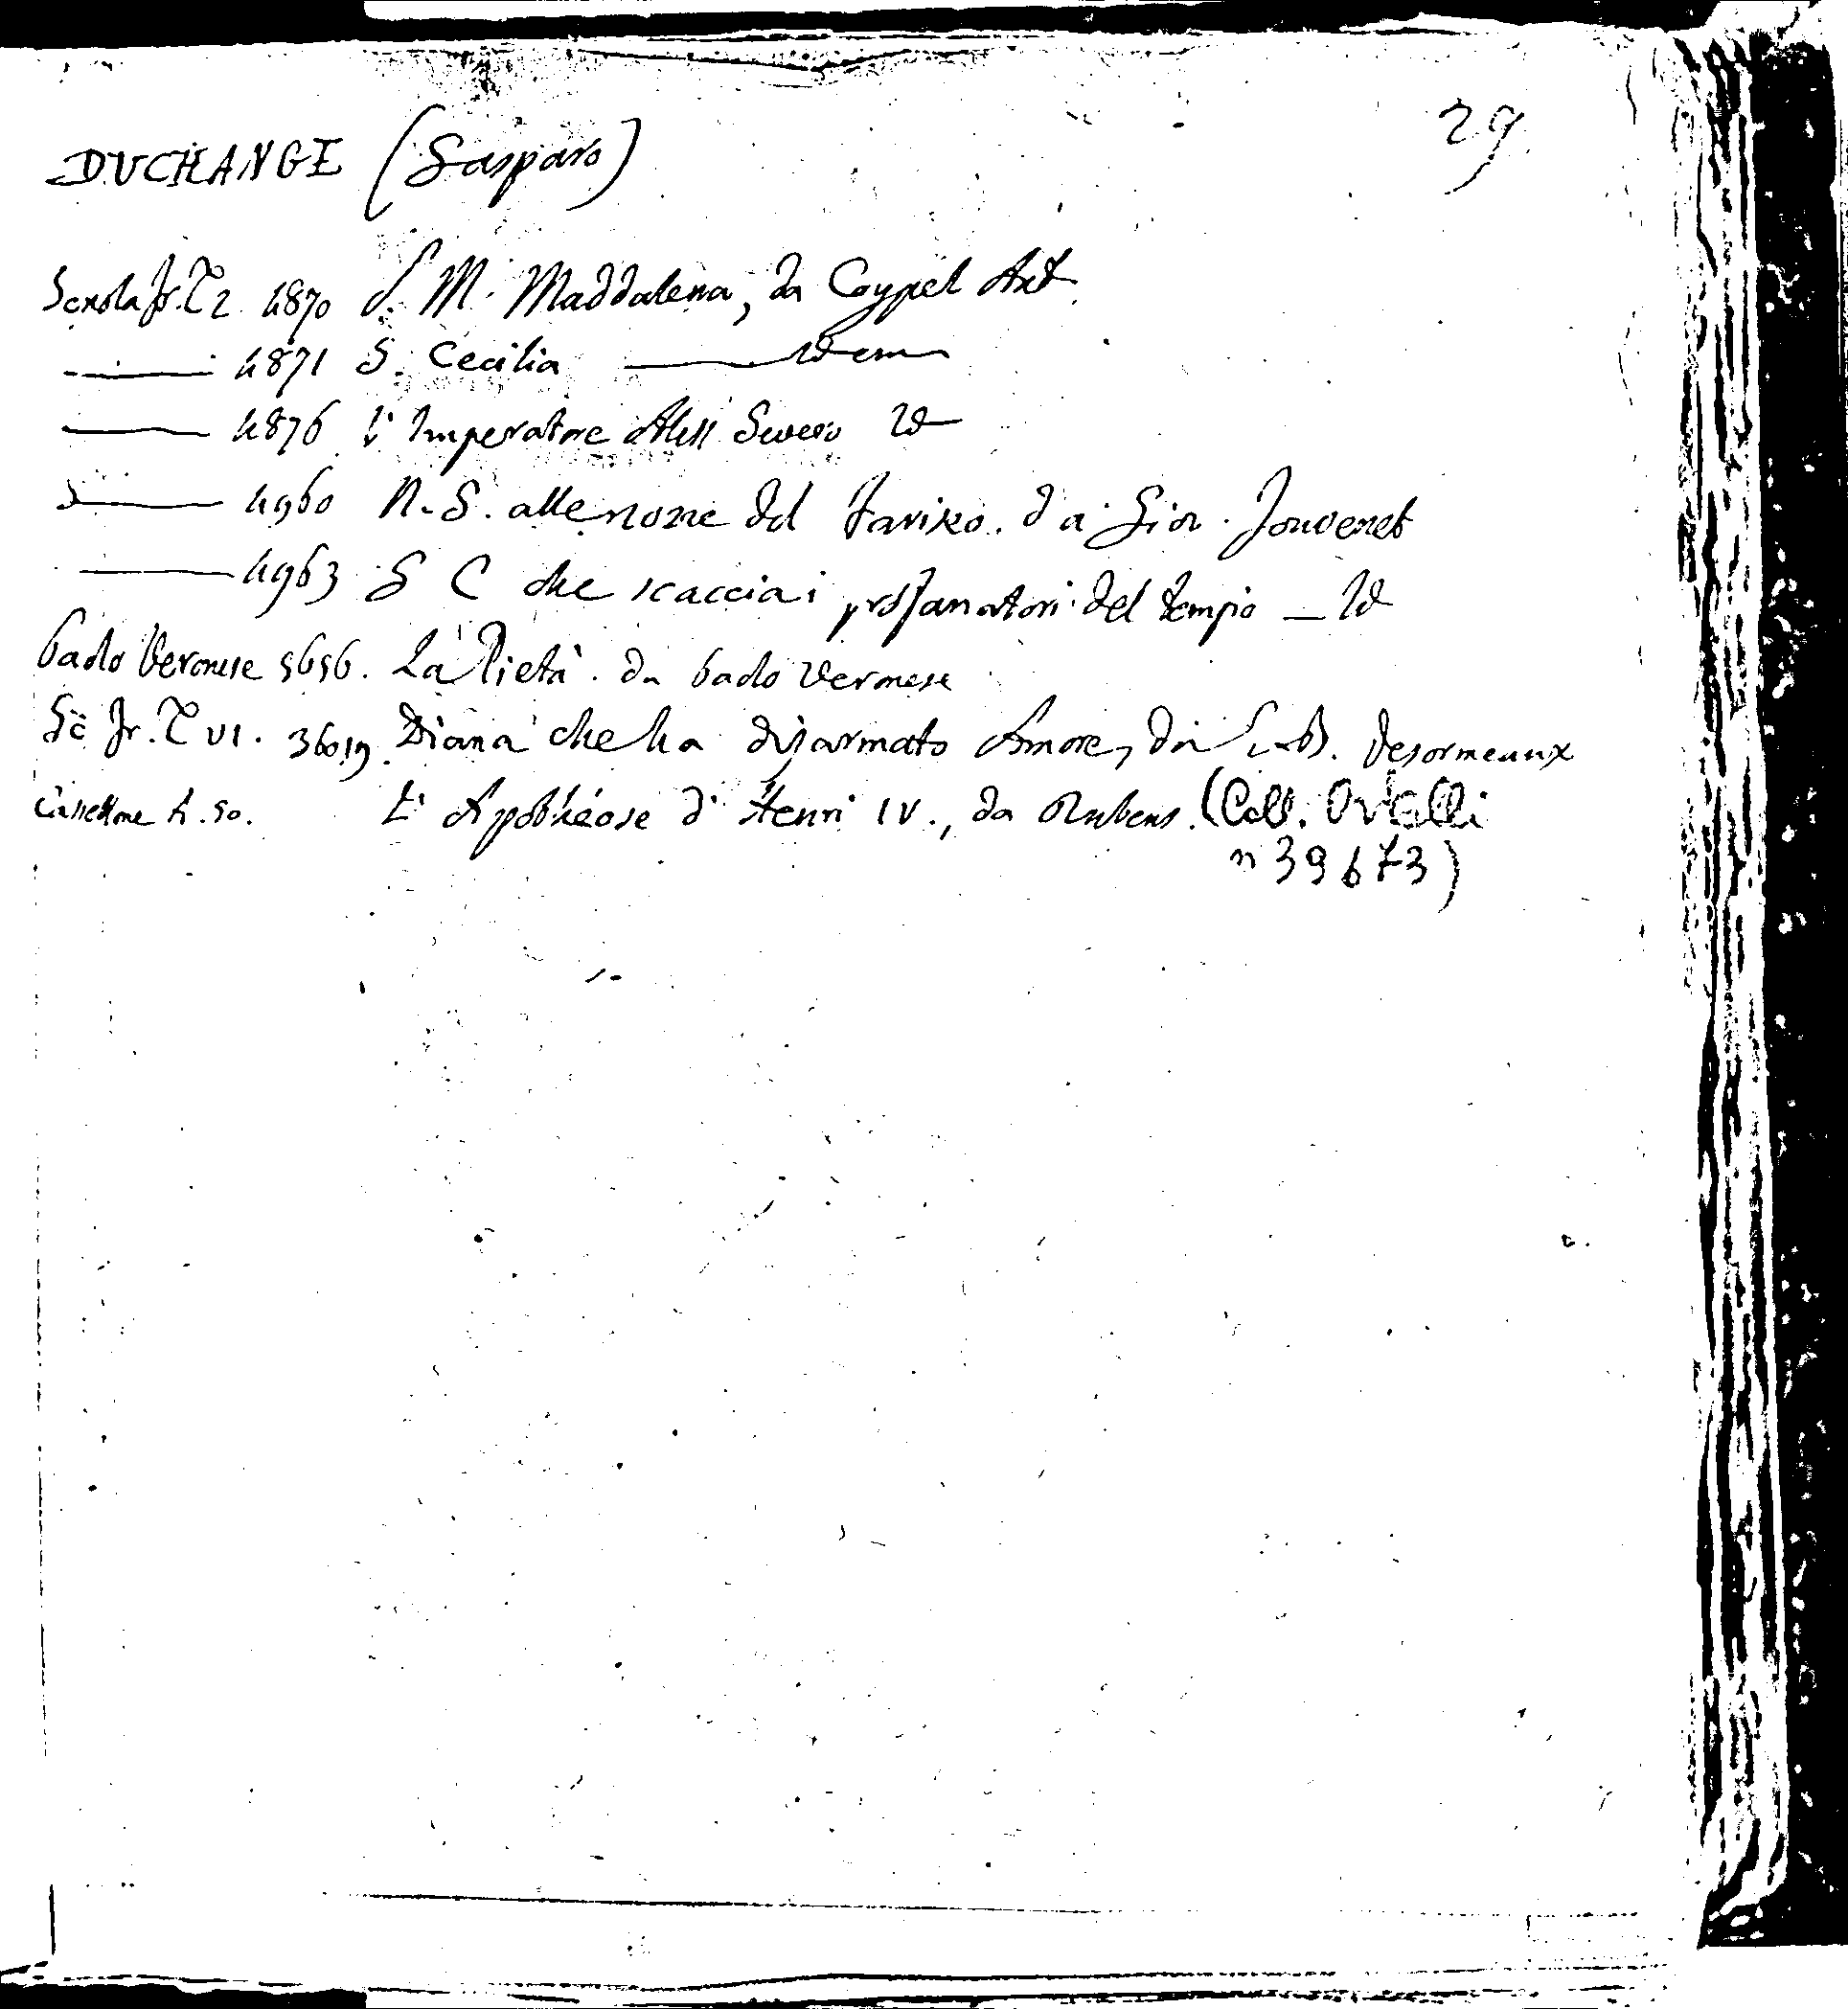 29
DUCHANGE (Gasparo)
Scuola fr. T 2. 4870 S. M. Maddalena, da Coypel Ant
—— 4871 S. Cecilia —— Idem
—— 4876 L'Imperatore Aless Severo Id
—— 4960 N. S. alle nozze del Fariseo. da Gio. Jouvenet
—— 4963 G C che scaccia i profanatori del tempio — Id
Paolo Veronese 5656. La Pietà. da Paolo Veronese
Sc Fr. T VI. 36019. Diana che ha disarmato Amore, da Desormeaux
Cassettone h. 50. L'Apothéose d'Henri IV., da Rubens. (Coll. Ortalli
n 39673)